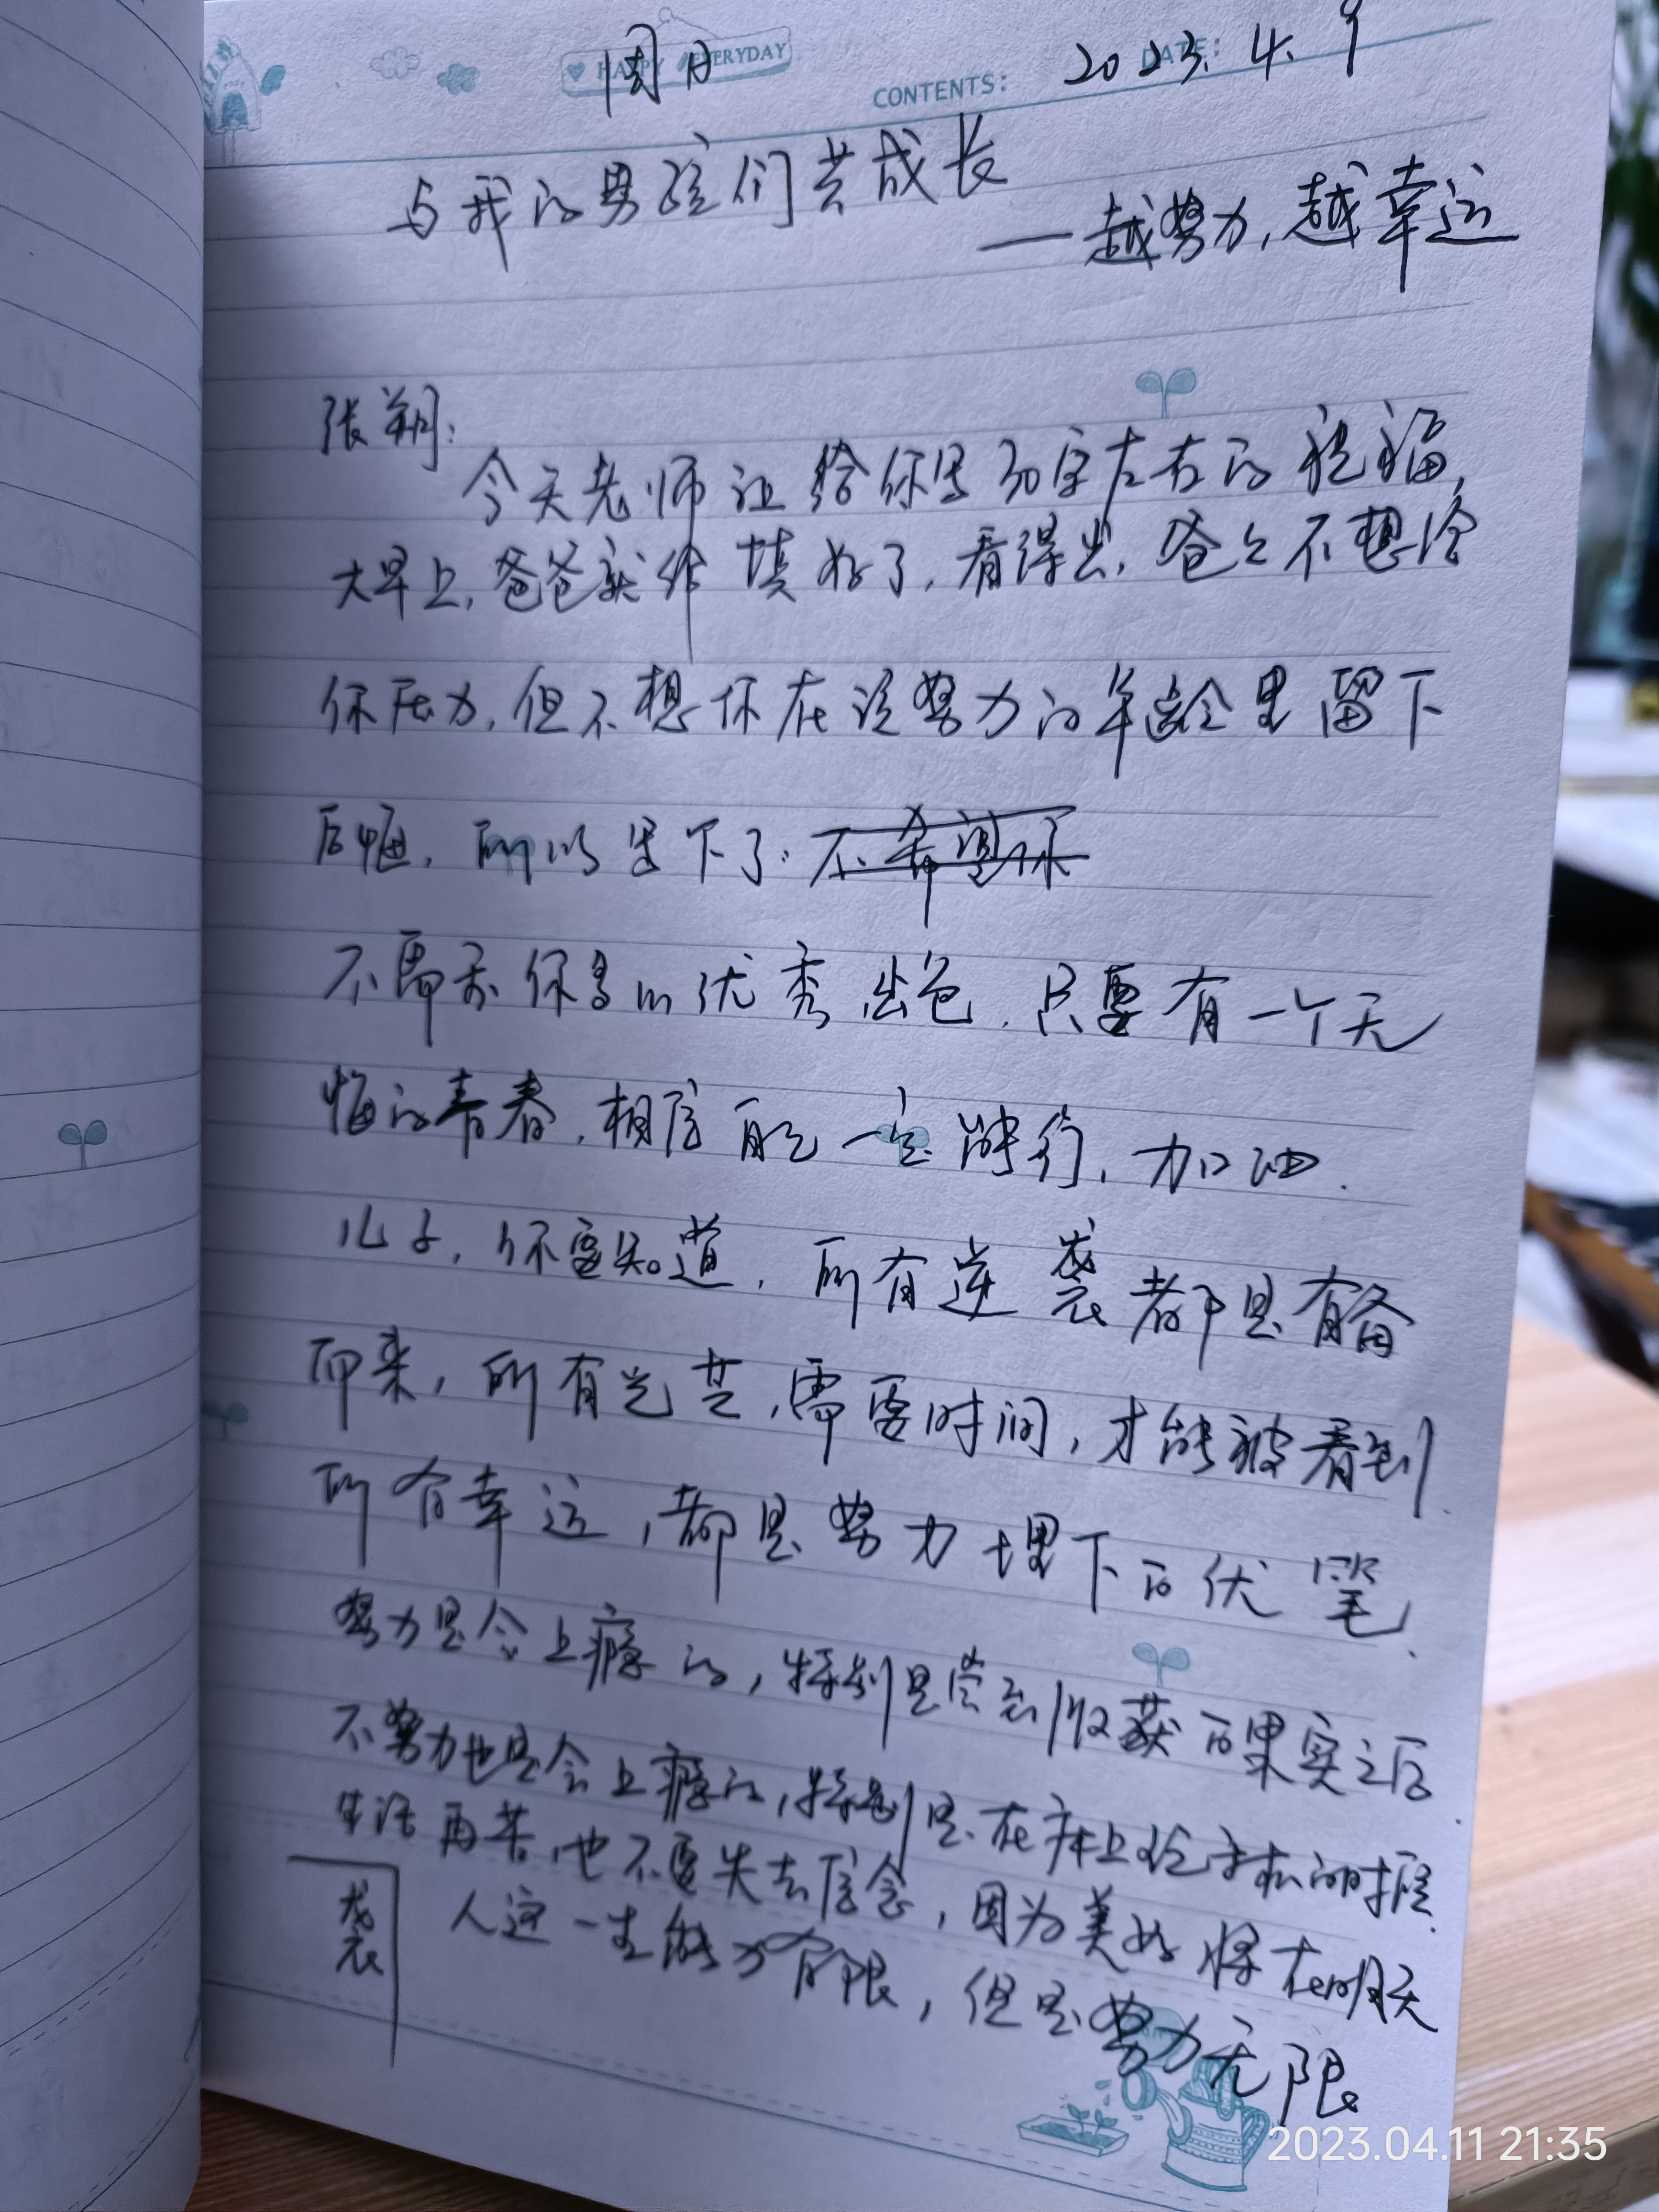 HAPPY EVERYDAY
周日
CONTENTS:
DATE:
2023.4.9
与我的男孩们共成长
——越努力,越幸运
张朔:
今天老师让给你写30字左右的祝福,
大早上,爸爸就给填好了,看得出,爸爸不想给
你压力,但不想你在该努力的年龄里留下
后悔,所以写下了:不希望你
不需要你多么优秀出色,只要有一个无
悔的青春,相信自己一定能行,加油.
儿子,你要知道,所有逆袭都是有备
而来,所有光芒,需要时间,才能被看到.
所有幸运,都是努力埋下的伏笔.
努力是会上瘾的,特别是尝到收获的果实之后.
不努力也是会上瘾的,特别是在床上玩手机的时候.
生活再苦,也不要失去信念,因为美好将在明天
人这一生能力有限,但是努力无限
袭
2023.04.11 21:35